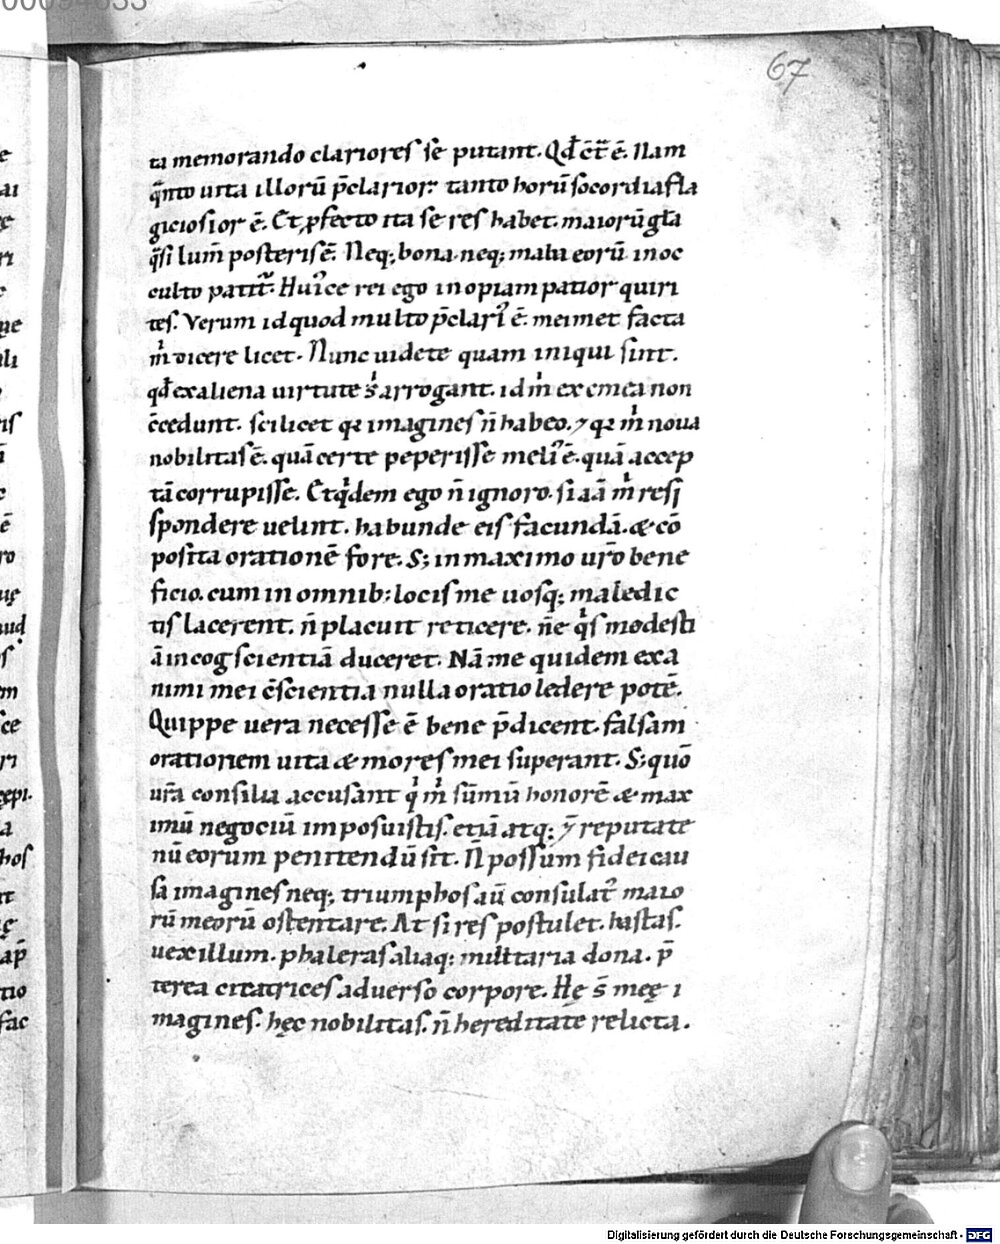 00094033
67
ta memorando clariores se putant. Qđ ct̄r̄ ē. Nam
q̄nto uita illorū p̄clarior: tanto horū socordia fla
giciosior ē. Et ꝓfecto ita se res habet. maiorū gl̄a
q̄si lum̄ posteris ē. Neq; bona. neq; mala eorū in oc
culto patit᷑. Huꝰce rei ego inopiam patior quiri
tes. Verum id quod multo p̄clariꝰ ē. meimet facta
m̊ dicere licet. Nunc uidete quam iniqui sint.
qđ ex aliena uirtute s̊ arrogant. id m̊ ex mea non
c̄cedunt. scilicet qa imagines n̄ habeo. ⁊ qa m̊ noua
nobilitas ē. quā certe peperisse meliꝰ ē. quā accep
tā corrupisse. Et qdem ego n̄ ignoro. si iā m̊ resi
spondere uelint. habunde eis facundā. & cō
posita orationē fore. S; in maximo ur̄o bene
ficio. cum in omnib; locis me uosq; maledic
tis lacerent. n̄ placuit reticere. ne qs modesti
ā in cogscientiā duceret. Nā me quidem ex a
nimi mei c̄scientia nulla oratio ledere potē.
Quippe uera necesse ē bene p̄dicent. falsam
orationem uita & mores mei superant. S; quō
ur̄a consilia accusant q m̊ sūmū honorē & max
imū negociū imposuistis. etiā atq; ⁊ reputate
nū eorum penitendū sit. N̄ possum fidei cau
sa imagines neq; triumphos aū consulatꝰ maio
rū meorū ostentare. At si res postulet. hastas.
uexillum. phaleras aliaq; militaria dona. p̄
terea cicatrices aduerso corpore. Hę s̄ meę i
magines. hęc nobilitas. n̄ hereditate relicta.
Digitalisierung gefördert durch die Deutsche Forschungsgemeinschaft - DFG